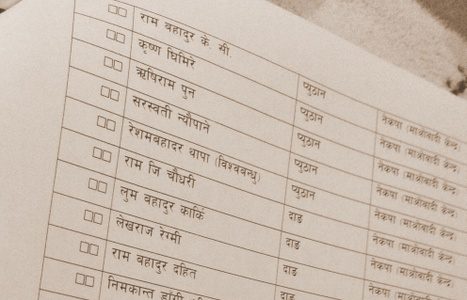 राम बहादुर के. सी. प्युठान नेकपा (माओवादी केन्द्र)
कृष्ण घिमिरे प्युठान नेकपा (माओवादी केन्द्र)
ऋषिराम पुन प्युठान नेकपा (माओवादी केन्द्र)
सरस्वती न्यौपाने प्युठान नेकपा (माओवादी केन्द्र)
रेशमबहादर थापा (विश्वबन्धु) प्युठान नेकपा (माओवादी केन्द्र)
राम जि चौधरी दाङ नेकपा (माओवादी केन्द्र)
लुम बहादुर काकि दाङ नेकपा (माओवादी केन्द्र)
लेखराज रेग्मी दाङ नेकपा (माओवादी केन्द्र)
राम बहादुर दहित दाङ
निमकान्त डाँगी